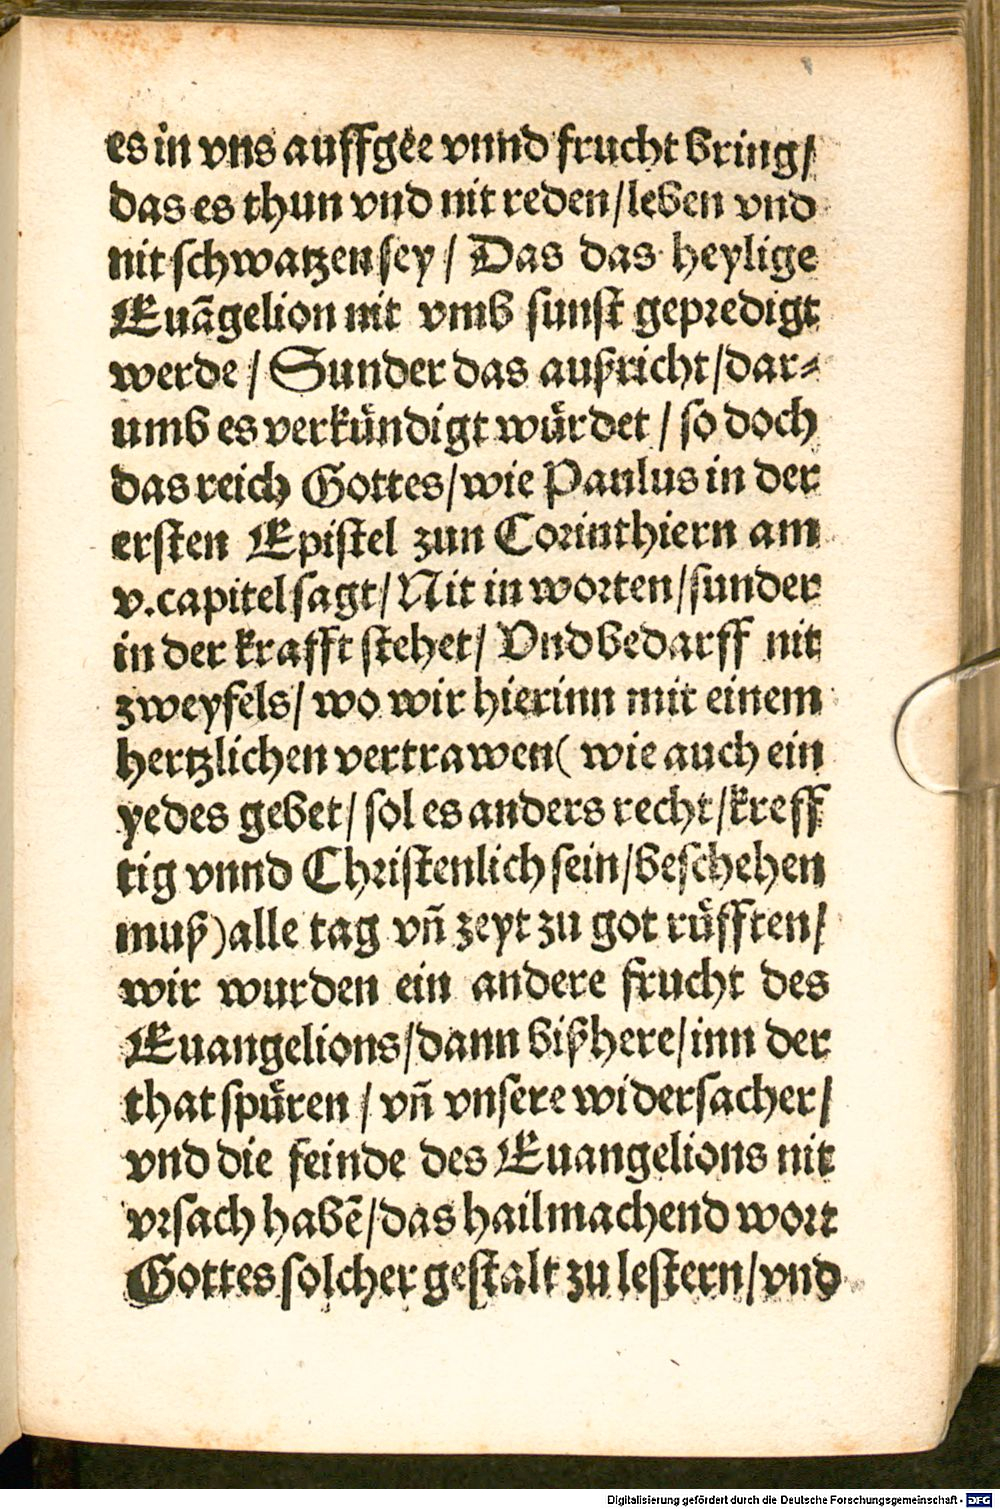 es in vns auffgee vnnd frucht bring/
das es thun vnd nit reden/leben vnd
nit schwatzen sey/ Das das heylige
Euãgelion nit vmb sunst gepredigt
werde/ Sunder das außricht/dar-
umb es verkündigt würdet/ so doch
das reich Gottes/wie Paulus in der
ersten Epistel zun Corinthiern am
v.capitel sagt/Nit in worten/sunder
in der krafft stehet/ Vnd bedarff nit
zweyfels/ wo wir hierinn mit einem
hertzlichen vertrawen( wie auch ein
yedes gebet/ sol es anders recht/kreff
tig vnnd Christenlich sein/beschehen
muß)alle tag vñ zeyt zu got rüfften/
wir wurden ein andere frucht des
Euangelions/dann bißhere/inn der
that spüren/ vñ vnsere widersacher/
vnd die feinde des Euangelions nit
vrsach habẽ/das hailmachend wort
Gottes solcher gestalt zu lestern/vnd
Digitalisierung gefördert durch die Deutsche Forschungsgemeinschaft - DFG